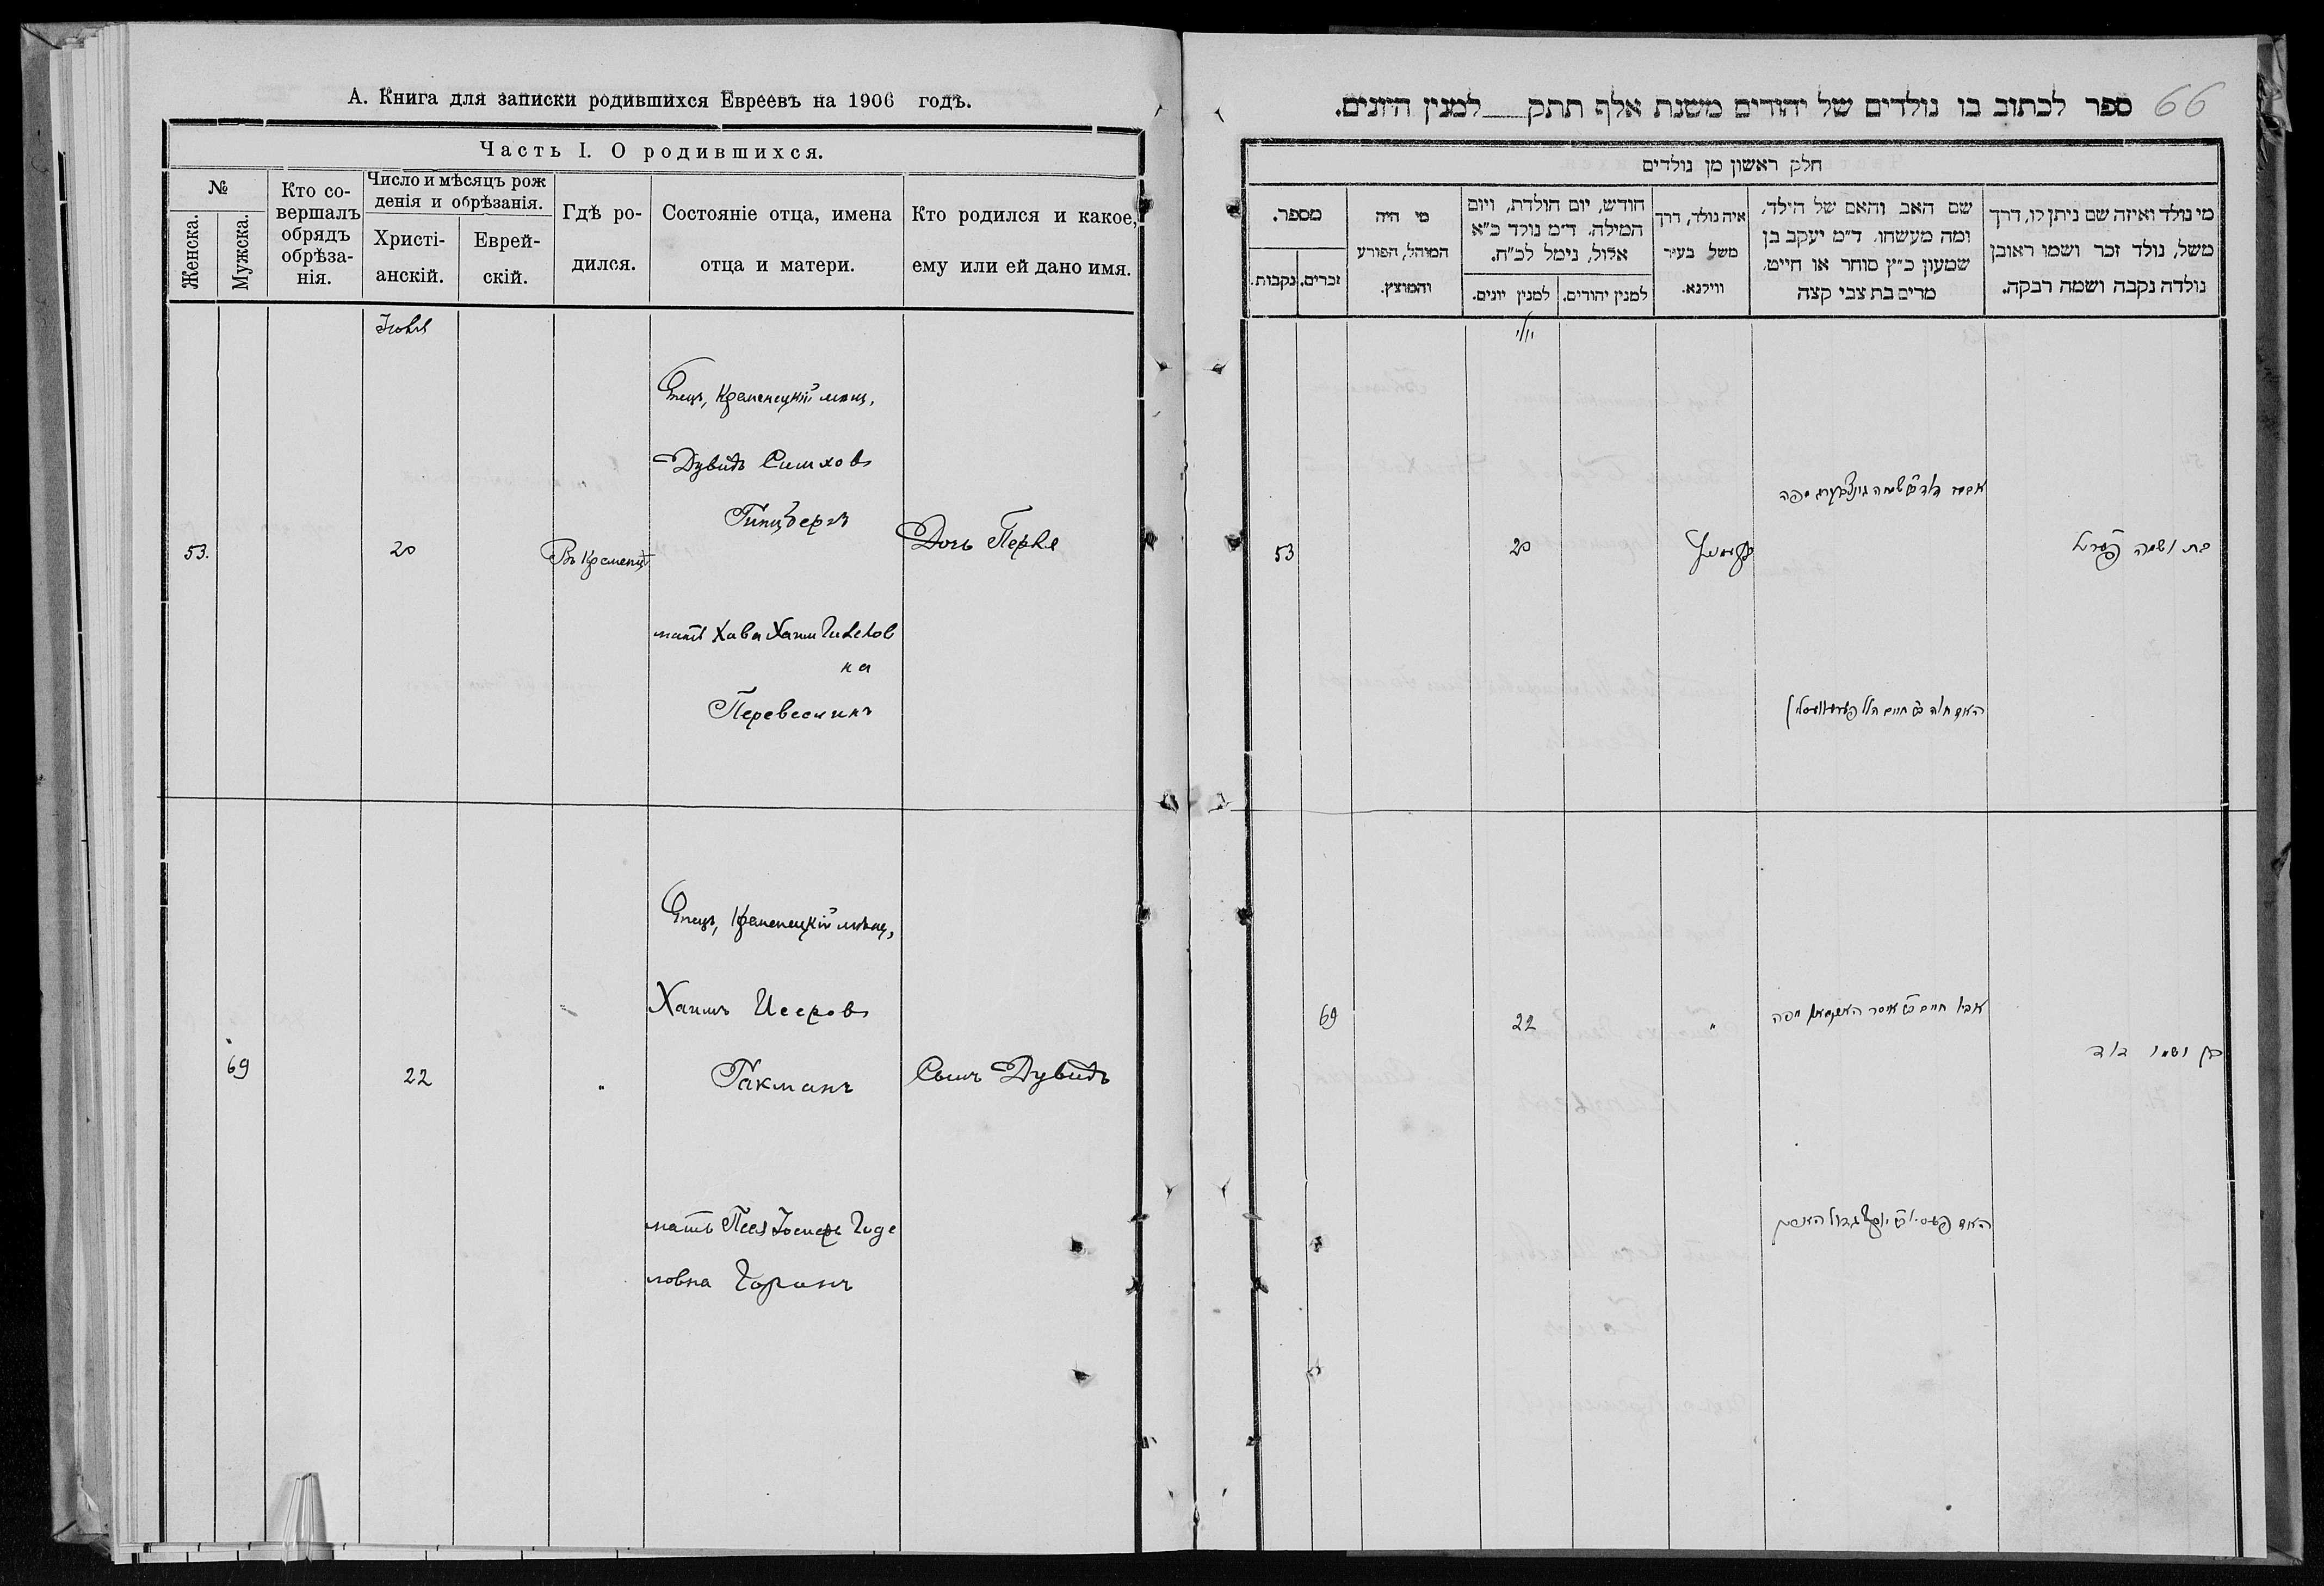 А. Книга для записки родившихся Евреевъ на 1906 годъ.
Часть I. О родившихся.
№
Женска.
Мужска.
Кто со-
вершалъ
обрядъ
обрѣза-
нія.
Число и мѣсяцъ рож
денія и обрѣзанія.
Христі-
анскій.
Еврей-
скій.
Гдѣ ро-
дился.
Состояніе отца, имена
отца и матери.
Кто родился и какое,
ему или ей дано имя.
Іюля
53.
20
Въ Кременцѣ
Отецъ, Кременецкій мѣщ.
Дувидъ Симховъ
Гинцбергъ
мать Хава Хаим Гилелов
на
Перевескинъ
Дочь Перля
69
22
"
Отецъ, Кременецкій мѣщ.,
Хаимъ Исеровъ
Гакманъ
мать Песя Іосифъ Годе
ловна Горинъ
Сынъ Дувидъ
66
ספר לכתוב בו נולדים של יהודים משנת אלף תתק למנין היונים.
חלק ראשון מן נולדים
מי נולד ואיזה שם ניתן לו, דרך
משל, נולד זכר ושמו ראובן
נולדה נקבה ושמה רבקה.
שם האב והאם של הילד,
ומה מעשהו, ד"מ יעקב בן
שמעון כ"ץ סוחר או חייט,
מרים בת צבי קצה
איה נולד, דרך
משל בעיר
ווילנא.
חודש, יום הולדת, ויום
המילה, ד"מ נולד כ"א
אלול, נימל לכ"ח.
למנין יהודים.
למנין יונים.
מי היה
המוהל, הפורע
והמוצץ.
מספר.
זכרים.
נקבות.
יולי
53
20
בת ושמה פערל
69
22
"
בן ושמו דוד